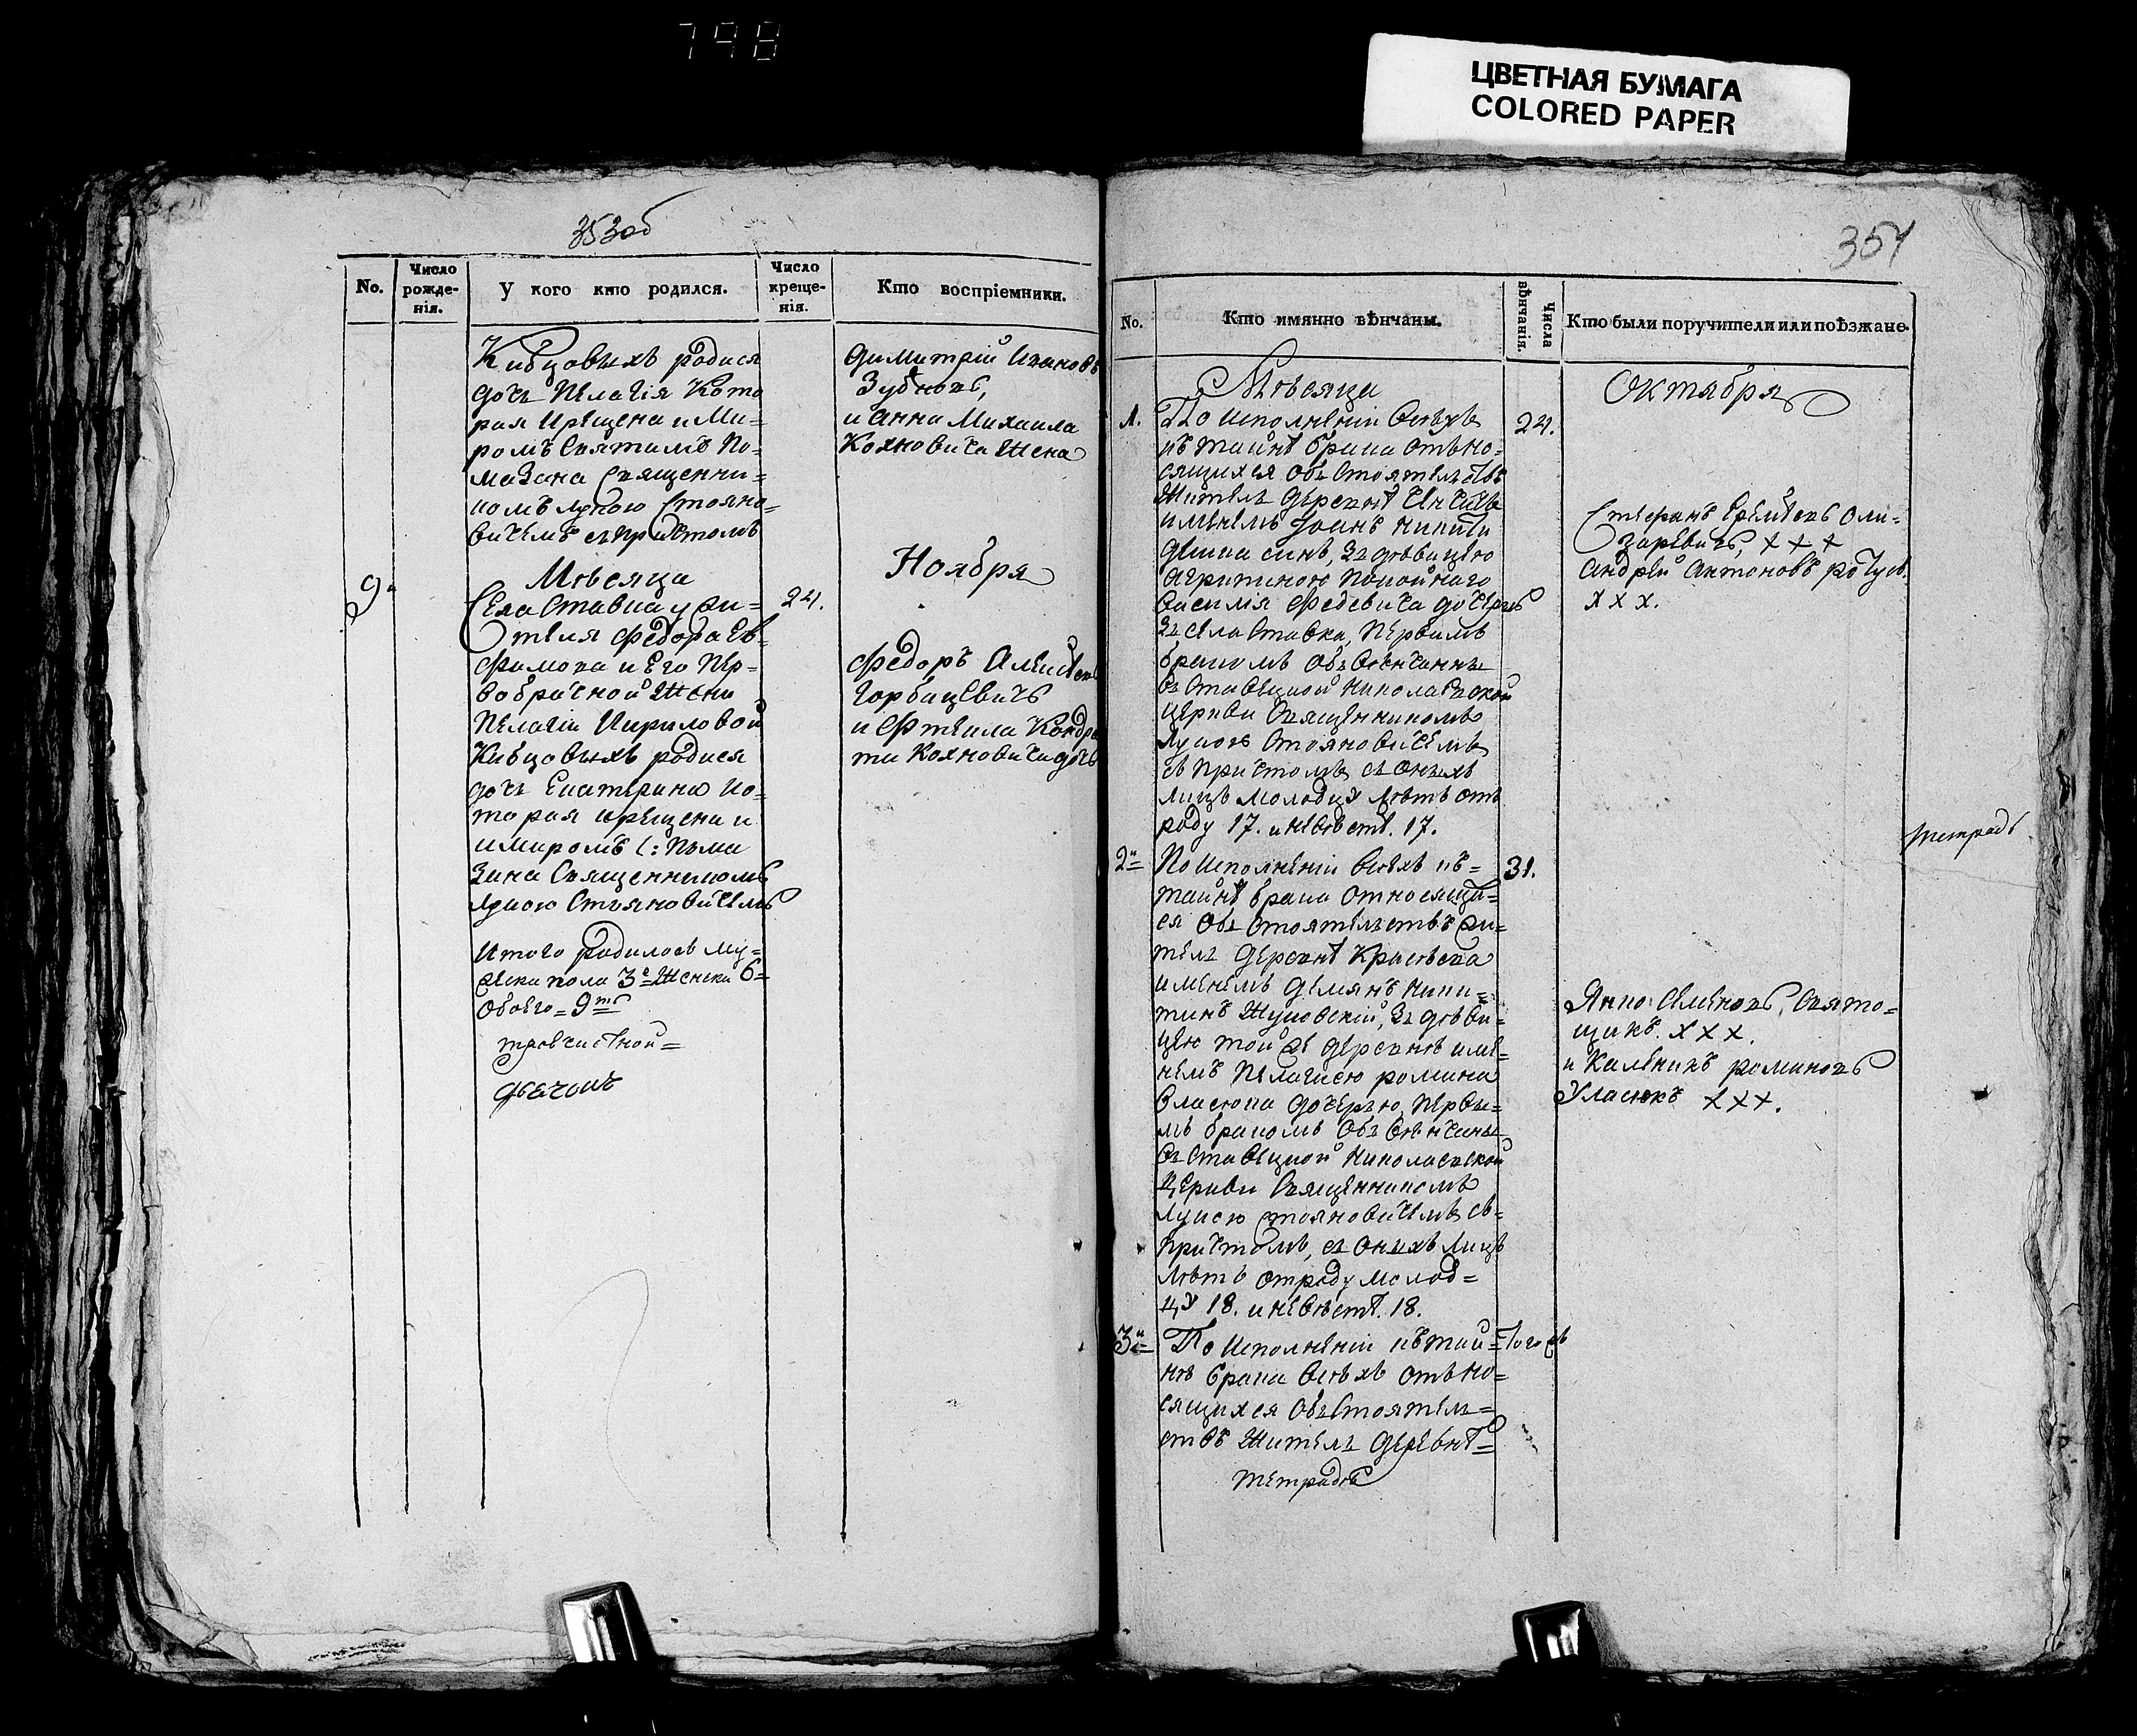 798
ЦВЕТНАЯ БУМАГА
COLORED PAPER
353об
No.
Число рожде-нія.
У кого кто родился.
Число креще-нія.
Кто воспріемники.
Кивцовыхъ родися
дочь Пелагія Кото
рая крещена и Ми-
ромъ Святимъ По-
мазана Священни-
комъ Лукою Стояно-
вичемъ съ причтомъ
Димитрій Ивановъ
Зубковъ,
и Анна Михаила
Кохновича Жена
Мѣсяца
Ноября
9.
Села Ставка у жи-
теля Федора Ев-
фимова и Его Пер-
вобрачной Жени
Пелагіи Кириловой
Кивцовыхъ родися
дочь Екатерина ко-
торая крещена и
и миромъ С: Пома
Зана Священникомъ
Лукою Стояновичемъ
24.
Федоръ Алексѣевъ
Горбацевичъ
и Фтекла Кондра
ти Кохновича дочь
Итого родилось Му-
жска пола 3 Женска 6
Обоего = 9
351
No.
Кто имянно вѣнчаны.
Числа вѣнчанія.
Кто были поручители или поѣзжане.
Мѣсяца
Октября
1.
По исполненіи Всѣхъ
къ тайнѣ брака отъно-
сящихся объстоятелствъ
Житель деревнѣ
именемъ Іоанъ Никити
сынъ, зъ дѣвицею
Покойнаго
Василія Федевича дочерю
зъ села Ставка, Первимъ
бракомъ объвѣнчанны
въ Ставецкой Николаевской
церкви Священникомъ
Лукою Стояновичемъ
съ причтомъ, съ оныхъ
лицъ молодцу лѣтъ отъ
роду 17. и невѣстѣ. 17.
24.
Стефанъ Еремѣевъ Оли-
заревичъ, х х х
Андрей Антоновъ
х х х.
2
По исполненіи всѣхъ къ-
тайнѣ брака относящи-
ся объстоятелствъ жи-
тель деревнѣ
именемъ Демянъ Ники-
тинъ Жуковскій, зъ дѣви-
цею той же деревнѣ име-
немъ Пелагиею Романа
Власюка дочерью, Первы-
мъ бракомъ объвѣнчаны
въ Ставецкой Николаевской
церкви Священникомъ
Лукою Стояновичемъ съ-
причтомъ, съ оныхъ лицъ
лѣтъ отроду молод-
цу 18. и невѣстѣ. 18.
31.
Семеновъ, Свято-
щикъ. х х х.
и Каленикъ романовъ
Уласюкъ х х х.
тетрадь
3
По исполненіи къ тай-
нѣ брака всѣхъ отъно-
сящихся объстоятель-
ствъ житель деревнѣ
Тогожъ
тетрадь